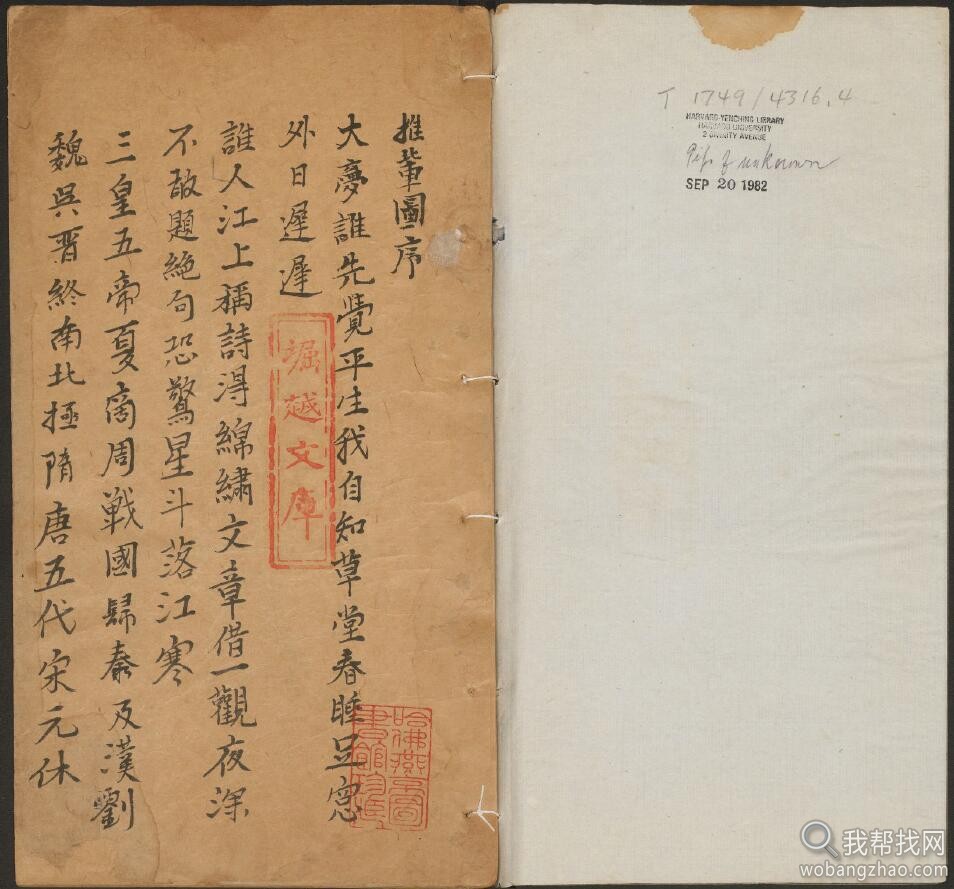 推輩圖序
大夢誰先覺平生我自知草堂春睡足窓
外日遲遲
誰人江上稱詩得綿繡文章借一觀夜深
不敢題絕句恐驚星斗落江寒
三皇五帝夏商周戰國歸秦及漢劉
魏吳晋終南北極隋唐五代宋元休
堀越文庫
哈佛燕京圖書館珍藏
T 1749/4316.4
HARVARD-YENCHING LIBRARY
HARVARD UNIVERSITY
2 DIVINITY AVENUE
Gift of unknown
SEP 20 1982
我帮找网
wobangzhao.com